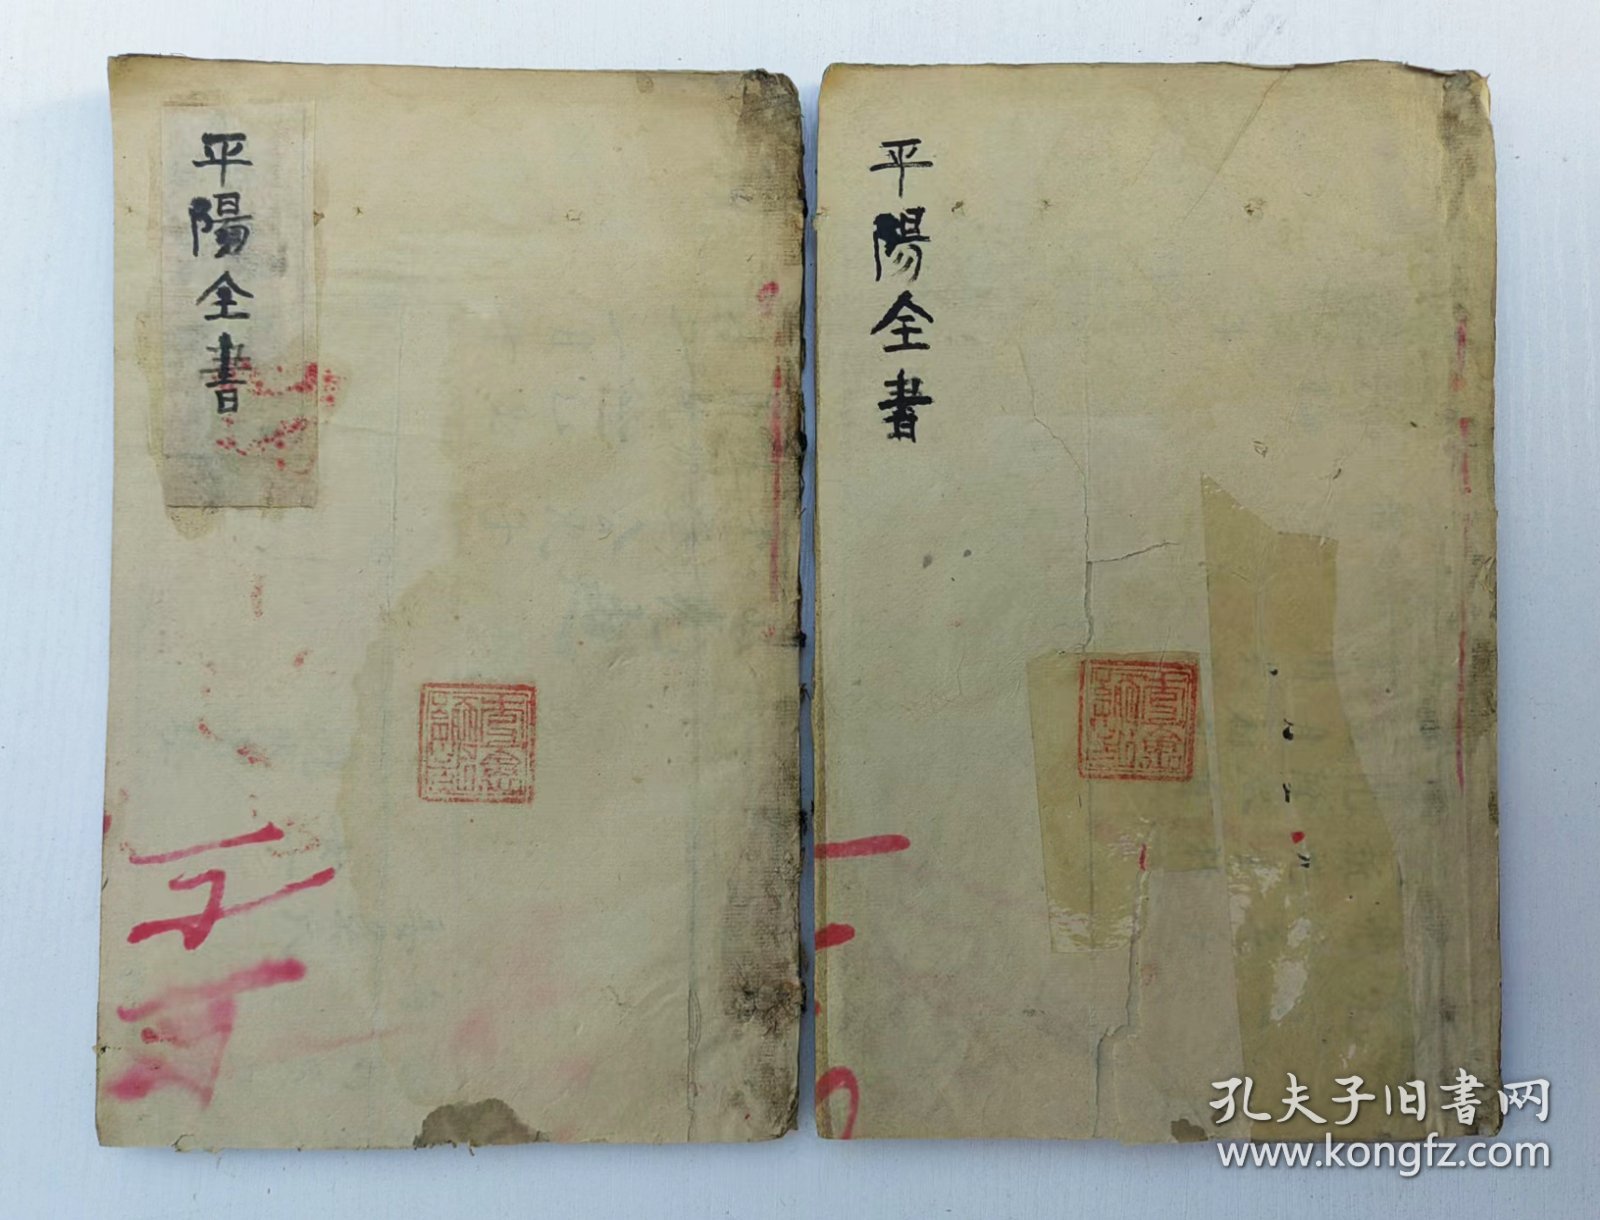 平陽全書
平陽全書
孔夫子旧书网
www.kongfz.com